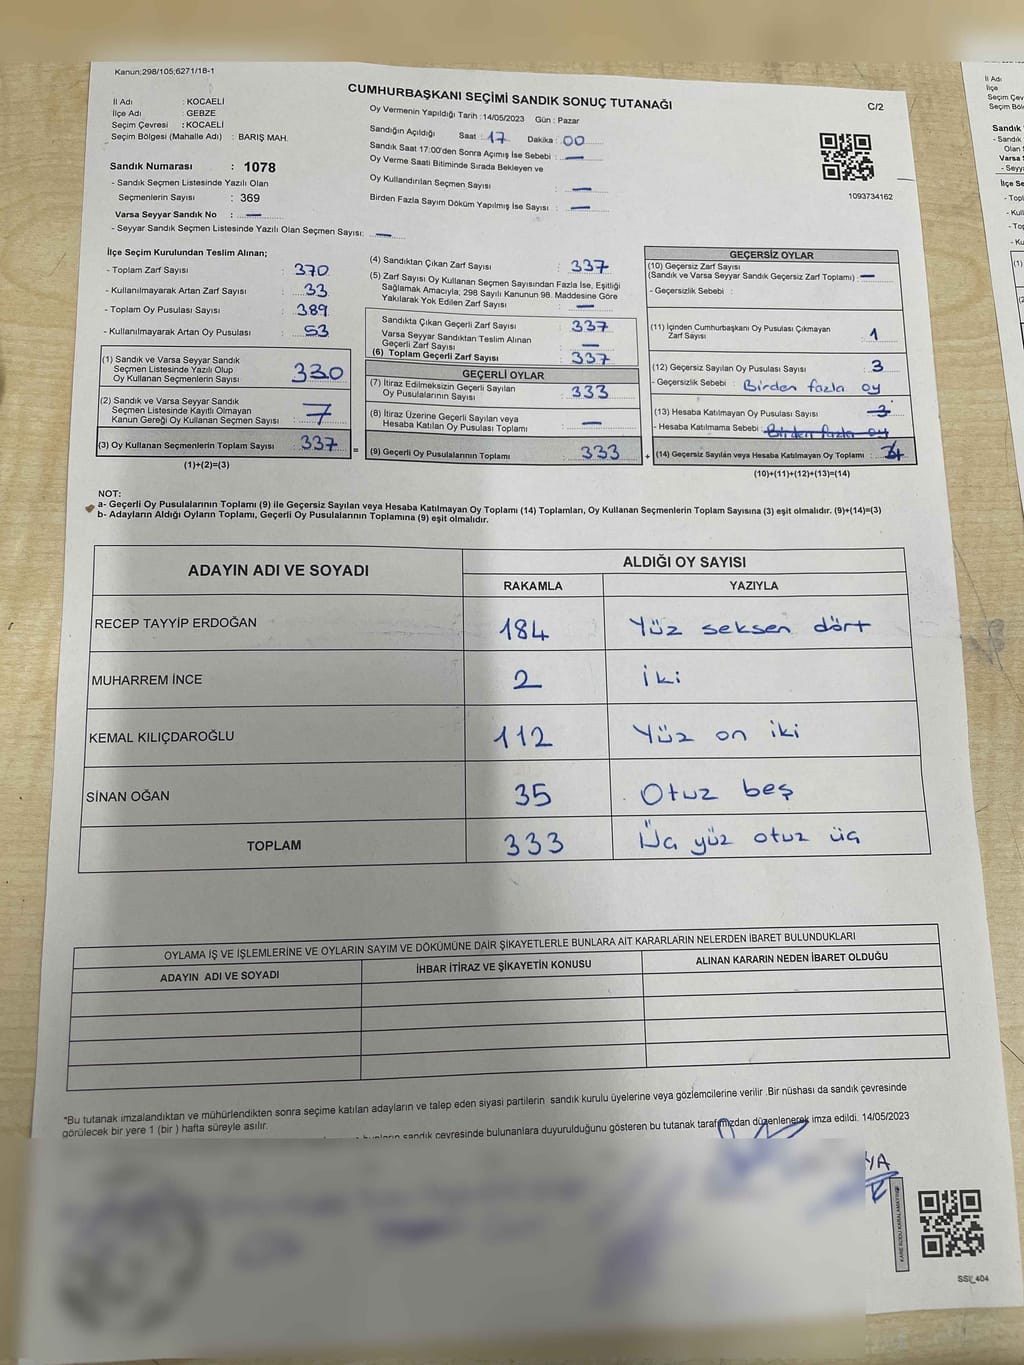 Kanun;298/105;6271/18-1
CUMHURBAŞKANI SEÇİMİ SANDIK SONUÇ TUTANAĞI
C/2
İl Adı : KOCAELİ
İlçe Adı : GEBZE
Seçim Çevresi : KOCAELİ
Seçim Bölgesi (Mahalle Adı) : BARIŞ MAH.
Oy Vermenin Yapıldığı Tarih :14/05/2023 Gün : Pazar
Sandığın Açıldığı Saat : 17 Dakika : 00
Sandık Saat 17:00'den Sonra Açımış İse Sebebi : —
Oy Verme Saati Bitiminde Sırada Bekleyen ve
Oy Kullandırılan Seçmen Sayısı : —
Birden Fazla Sayım Döküm Yapılmış İse Sayısı : —
1093734162
Sandık Numarası : 1078
- Sandık Seçmen Listesinde Yazılı Olan
Seçmenlerin Sayısı : 369
Varsa Seyyar Sandık No : —
- Seyyar Sandık Seçmen Listesinde Yazılı Olan Seçmen Sayısı: —
İlçe Seçim Kurulundan Teslim Alınan;
- Toplam Zarf Sayısı : 370
- Kullanılmayarak Artan Zarf Sayısı : 33
- Toplam Oy Pusulası Sayısı : 389
- Kullanılmayarak Artan Oy Pusulası : 53
(1) Sandık ve Varsa Seyyar Sandık
Seçmen Listesinde Yazılı Olup
Oy Kullanan Seçmenlerin Sayısı : 330
(2) Sandık ve Varsa Seyyar Sandık
Seçmen Listesinde Kayıtlı Olmayan
Kanun Gereği Oy Kullanan Seçmen Sayısı : 7
(3) Oy Kullanan Seçmenlerin Toplam Sayısı : 337
(1)+(2)=(3)
(4) Sandıktan Çıkan Zarf Sayısı : 337
(5) Zarf Sayısı Oy Kullanan Seçmen Sayısından Fazla İse, Eşitliği
Sağlamak Amacıyla; 298 Sayılı Kanunun 98. Maddesine Göre
Yakılarak Yok Edilen Zarf Sayısı : —
Sandıkta Çıkan Geçerli Zarf Sayısı : 337
Varsa Seyyar Sandıktan Teslim Alınan
Geçerli Zarf Sayısı : —
(6) Toplam Geçerli Zarf Sayısı : 337
GEÇERLİ OYLAR
(7) İtiraz Edilmeksizin Geçerli Sayılan
Oy Pusulalarının Sayısı : 333
(8) İtiraz Üzerine Geçerli Sayılan veya
Hesaba Katılan Oy Pusulası Toplamı : —
= (9) Geçerli Oy Pusulalarının Toplamı : 333 +
GEÇERSİZ OYLAR
(10) Geçersiz Zarf Sayısı
(Sandık ve Varsa Seyyar Sandık Geçersiz Zarf Toplamı) : —
- Geçersizlik Sebebi :
(11) İçinden Cumhurbaşkanı Oy Pusulası Çıkmayan
Zarf Sayısı : 1
(12) Geçersiz Sayılan Oy Pusulası Sayısı : 3
- Geçersizlik Sebebi : Birden fazla oy
(13) Hesaba Katılmayan Oy Pusulası Sayısı : 3
- Hesaba Katılmama Sebebi : Birden fazla oy
(14) Geçersiz Sayılan veya Hesaba Katılmayan Oy Toplamı : 4
(10)+(11)+(12)+(13)=(14)
NOT:
a- Geçerli Oy Pusulalarının Toplamı (9) ile Geçersiz Sayılan veya Hesaba Katılmayan Oy Toplamı (14) Toplamları, Oy Kullanan Seçmenlerin Toplam Sayısına (3) eşit olmalıdır. (9)+(14)=(3)
b- Adayların Aldığı Oyların Toplamı, Geçerli Oy Pusulalarının Toplamına (9) eşit olmalıdır.
ADAYIN ADI VE SOYADI
ALDIĞI OY SAYISI
RAKAMLA YAZIYLA
RECEP TAYYİP ERDOĞAN 184 Yüz seksen dört
MUHARREM İNCE 2 İki
KEMAL KILIÇDAROĞLU 112 Yüz on iki
SİNAN OĞAN 35 Otuz beş
TOPLAM 333 Üç yüz otuz üç
OYLAMA İŞ VE İŞLEMLERİNE VE OYLARIN SAYIM VE DÖKÜMÜNE DAİR ŞİKAYETLERLE BUNLARA AİT KARARLARIN NELERDEN İBARET BULUNDUKLARI
ADAYIN ADI VE SOYADI İHBAR İTİRAZ VE ŞİKAYETİN KONUSU ALINAN KARARIN NEDEN İBARET OLDUĞU
*Bu tutanak imzalandıktan ve mühürlendikten sonra seçime katılan adayların ve talep eden siyasi partilerin sandık kurulu üyelerine veya gözlemcilerine verilir .Bir nüshası da sandık çevresinde
görülecek bir yere 1 (bir ) hafta süreyle asılır.
sandık çevresinde bulunanlara duyurulduğunu gösteren bu tutanak tarafımızdan düzenlenerek imza edildi. 14/05/2023
KARE KODU KARALAMAYINIZ
SSL_404
İl Adı
İlçe
Seçim Çev
Seçim Böl
Sandık
- Sandık
Olan
Varsa
- Seyy
İlçe Se
- Topl
- Kull
- Top
- Ku
(1)